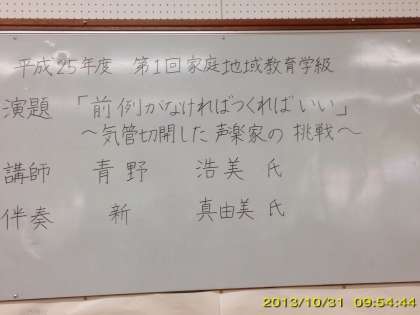 平成25年度 第1回家庭地域教育学級
演題 「前例がなければつくればいい」
～気管切開した声楽家の挑戦～
講師 青野 浩美 氏
伴奏 新 真由美 氏
2013/10/31 09:54:44